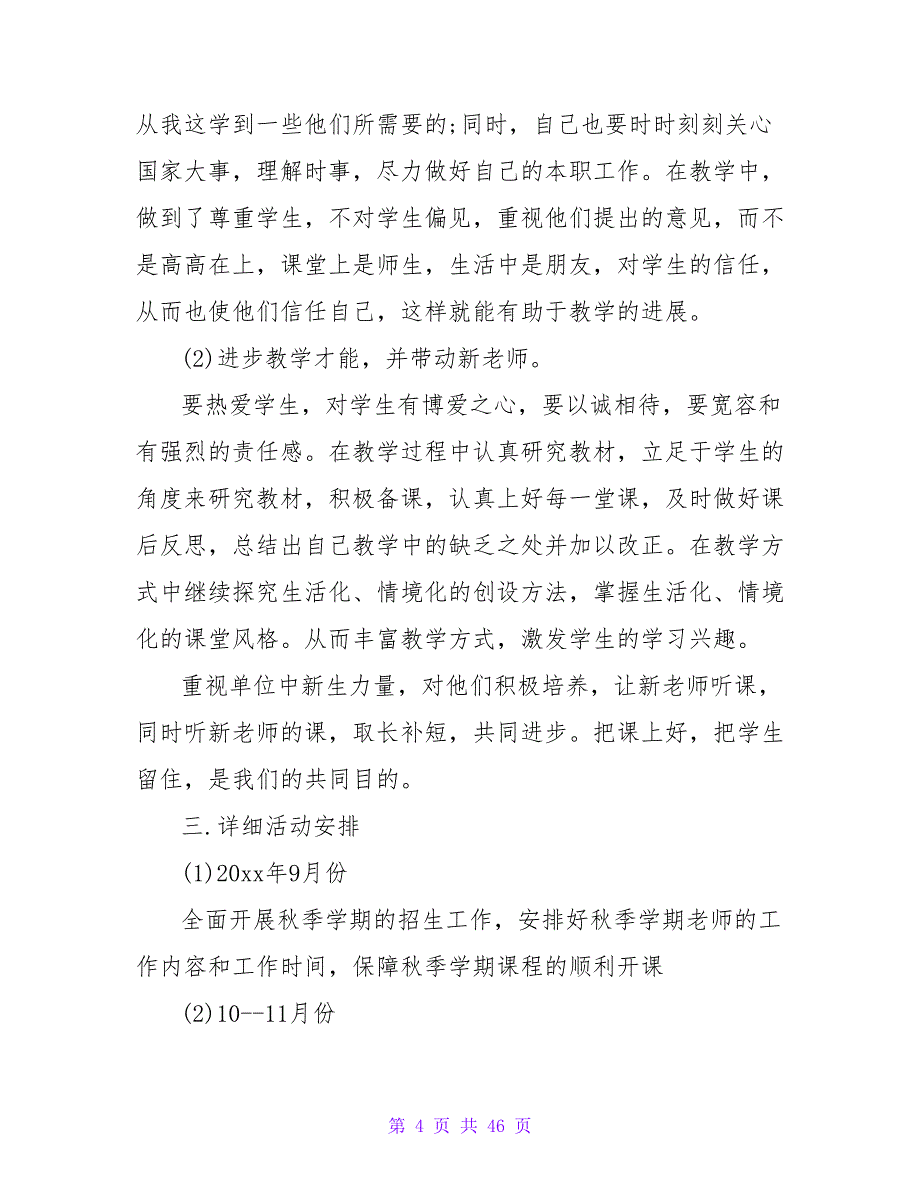 从我这学到一些他们所需要的;同时，自己也要时时刻刻关心
国家大事，理解时事，尽力做好自己的本职工作。在教学中，
做到了尊重学生，不对学生偏见，重视他们提出的意见，而不
是高高在上，课堂上是师生，生活中是朋友，对学生的信任，
从而也使他们信任自己，这样就能有助于教学的进展。
(2)进步教学才能，并带动新老师。
要热爱学生，对学生有博爱之心，要以诚相待，要宽容和
有强烈的责任感。在教学过程中认真研究教材，立足于学生的
角度来研究教材，积极备课，认真上好每一堂课，及时做好课
后反思，总结出自己教学中的缺乏之处并加以改正。在教学方
式中继续探究生活化、情境化的创设方法，掌握生活化、情境
化的课堂风格。从而丰富教学方式，激发学生的学习兴趣。
重视单位中新生力量，对他们积极培养，让新老师听课，
同时听新老师的课，取长补短，共同进步。把课上好，把学生
留住，是我们的共同目的。
三.详细活动安排
(1)20xx年9月份
全面开展秋季学期的招生工作，安排好秋季学期老师的工
作内容和工作时间，保障秋季学期课程的顺利开课
(2)10--11月份
第 4 页 共 46 页